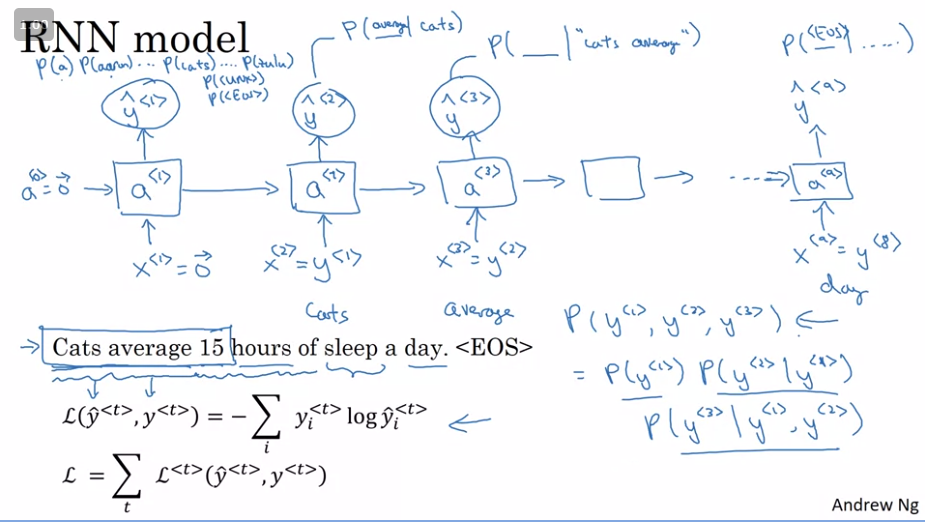 1:00
RNN model
P(a) P(aaron) ... P(cats) .... P(zulu)
P(<UNK>)
P(<EOS>)
P(average | cats)
P( ___ | "cats average")
P(<EOS> | .....)
ŷ<1> ŷ<2> ŷ<3> ŷ<9>
a<0>=0⃗ → a<1> → a<2> → a<3> → → ----⇒ a<9>
x<1>=0⃗ x<2>=y<1> x<3>=y<2> x<9>=y<8>
Cats average day
→ Cats average 15 hours of sleep a day. <EOS>
P(y<1>, y<2>, y<3>) ←
= P(y<1>) P(y<2>|y<1>)
P(y<3>|y<1>, y<2>)
ℒ(ŷ<t>, y<t>) = − ∑i yi<t> log ŷi<t> ←
ℒ = ∑t ℒ<t>(ŷ<t>, y<t>)
Andrew Ng